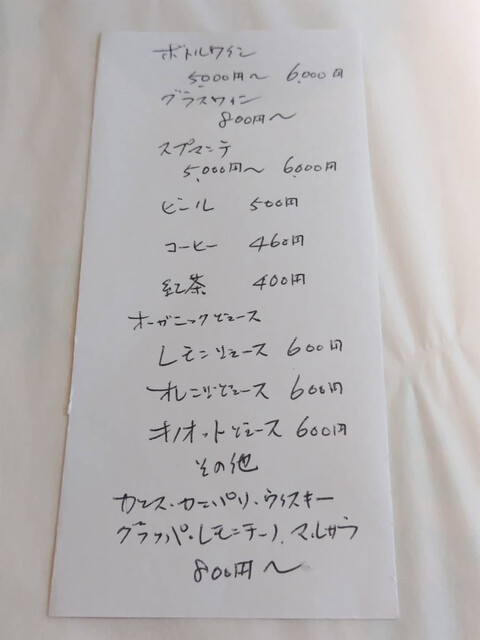 ボトルワイン
5,000円〜 6,000円
グラスワイン
800円〜
スプマンテ
5,000円〜 6,000円
ビール 500円
コーヒー 460円
紅茶 400円
オーガニックジュース
レモンジュース 600円
オレンジジュース 600円
キノットジュース 600円
その他
カシス・カンパリ・ウィスキー
グラッパ・レモンチーノ、マルサラ
800円〜